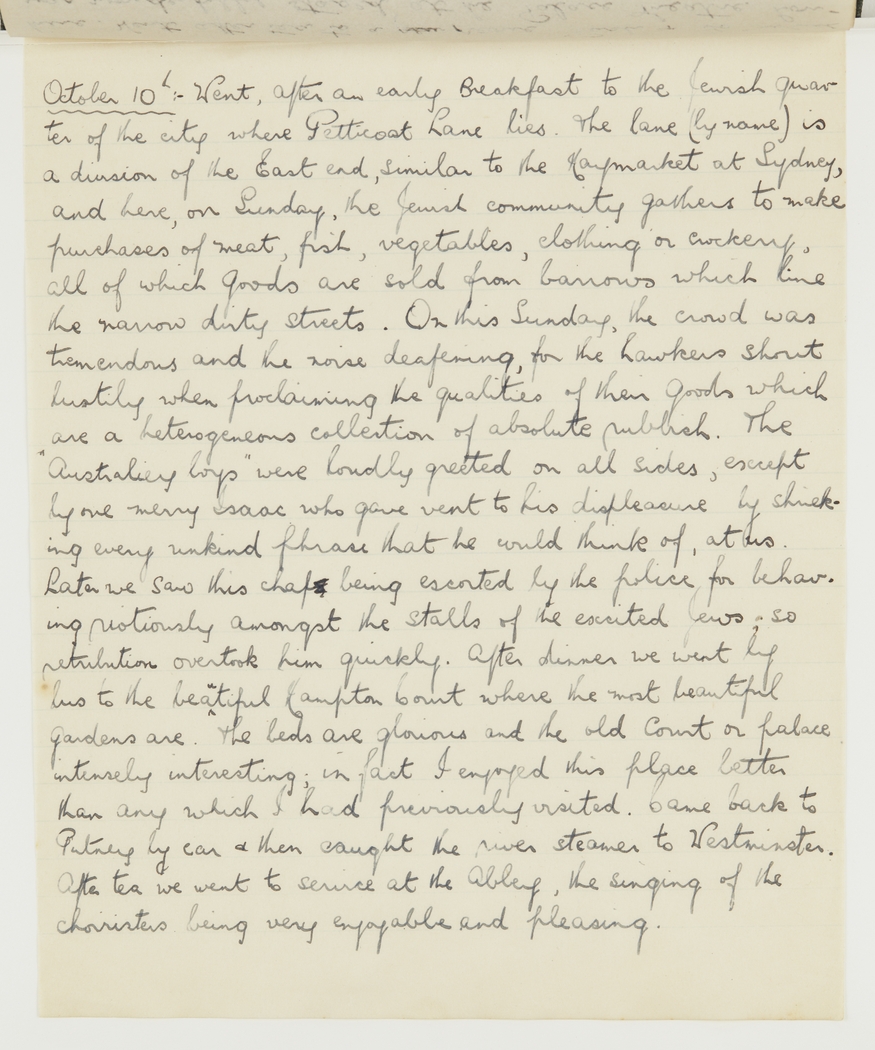 October 10th:- Went, after an early Breakfast to the Jewish quar-
ter of the city where Petticoat Lane lies. The lane (by name) is
a division of the East end, similar to the Haymarket at Sydney,
and here, on Sunday, the Jewish community gathers to make
purchases of meat, fish, vegetables, clothing or crockery,
all of which Goods are sold from barrows which line
the narrow dirty streets. On this Sunday, the crowd was
tremendous and the noise deafening, for the hawkers shout
lustily when proclaiming the qualities of their Goods which
are a heterogeneous collection of absolute rubbish. The
"Australiery boys" were loudly greeted on all sides, except
by one merry Isaac who gave vent to his displeasure by shriek-
ing every unkind phrase that he could think of, at us.
Later we saw this chap being escorted by the police for behav-
ing riotiously amongst the stalls of the excited Jews; so
retribution overtook him quickly. After dinner we went by
bus to the beautiful Hampton Court where the most beautiful
gardens are. The beds are glorious and the old Court or palace
intensely interesting; in fact I enjoyed this place better
than any which I had previously visited. Came back to
Putney by car & then caught the river steamer to Westminster.
After tea we went to service at the Abbey, the singing of the
choiristers being very enjoyable and pleasing.